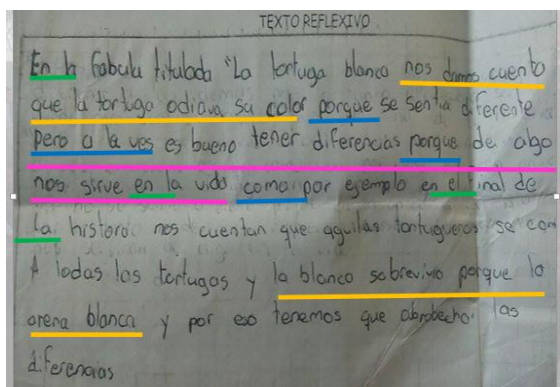 TEXTO REFLEXIVO
En la fabula titulada "La tortuga blanca nos damos cuenta
que la tortuga odiava su color porque se sentia diferente
pero a la ves es bueno tener diferencias porque de algo
nos sirve en la vida como por ejemplo en el final de
la historia nos cuentan que aguilas tortugueras se com
A todas las tortugas y la blanca sobrevivio porque la
arena blanca y por eso tenemos que abrobechar las
diferencias